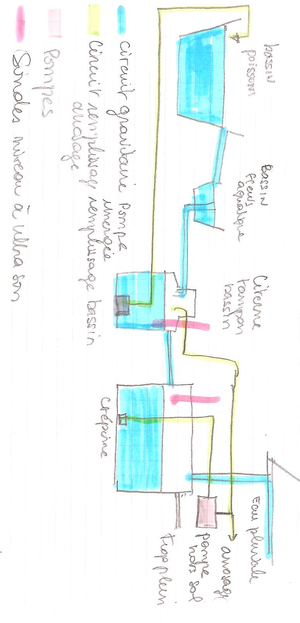 bassin
poissons
Bassin
fleurs
aquatique
Citerne
tampon
bassin
Eau pluviale
arrosage
pompe
hors sol
trop plein
Crépine
Circuit gravitaire
pompe
imergée
Circuit remplissage
remplissage bassin
Pompes
Sondes niveau à ultra son